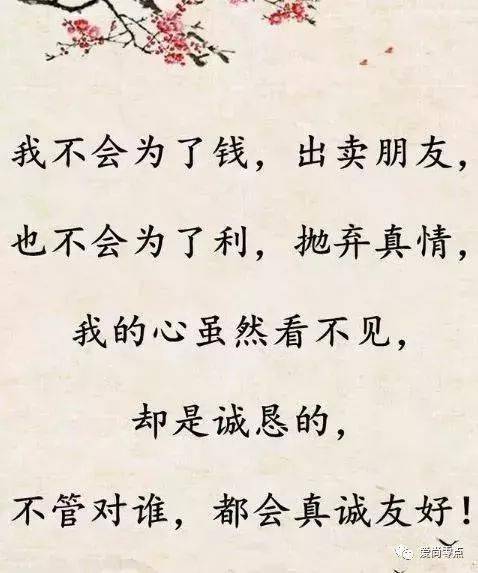 我不会为了钱，出卖朋友，
也不会为了利，抛弃真情，
我的心虽然看不见，
却是诚恳的，
不管对谁，都会真诚友好！
爱尚零点